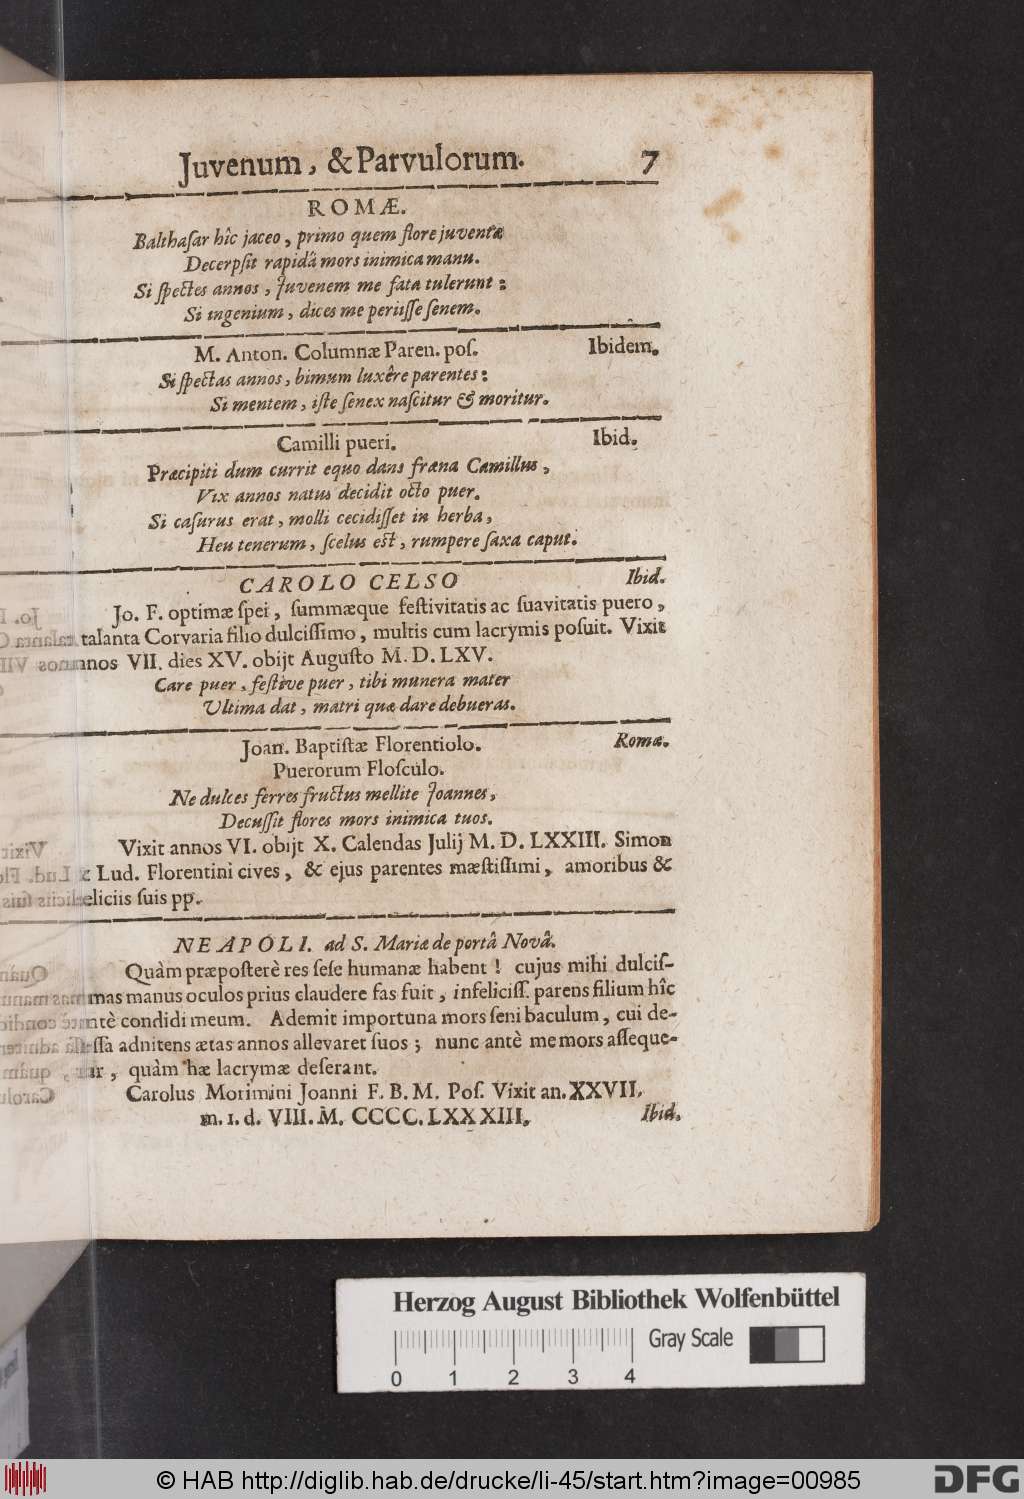 Juvenum, & Parvulorum. 7
ROMÆ.
Balthaſar hîc jaceo, primo quem flore juventæ
Decerpſit rapidâ mors inimica manu.
Si ſpectes annos, Juvenem me fata tulerunt:
Si ingenium, dices me periiſſe ſenem.
M. Anton. Columnæ Paren. poſ. Ibidem.
Si ſpectas annos, bimum luxêre parentes:
Si mentem, iſte ſenex naſcitur & moritur.
Camilli pueri. Ibid.
Præcipiti dum currit equo dans fræna Camillus,
Vix annos natus decidit octo puer.
Si caſurus erat, molli cecidiſſet in herba,
Heu tenerum, ſcelus eſt, rumpere ſaxa caput.
CAROLO CELSO Ibid.
Jo. F. optimæ ſpei, ſummæque feſtivitatis ac ſuavitatis puero,
talanta Corvaria filio dulciſſimo, multis cum lacrymis poſuit. Vixit
annos VII. dies XV. obijt Auguſto M. D. LXV.
Care puer, feſtive puer, tibi munera mater
Ultima dat, matri quæ dare debueras.
Joan. Baptiſtæ Florentiolo. Romæ.
Puerorum Floſculo.
Ne dulces ferres fructus mellite Joannes,
Decuſſit flores mors inimica tuos.
Vixit annos VI. obijt X. Calendas Julij M. D. LXXIII. Simon
& Lud. Florentini cives, & ejus parentes mæſtiſſimi, amoribus &
deliciis ſuis pp.
NEAPOLI. ad S. Mariæ de portâ Novâ.
Quàm præpoſterè res ſeſe humanæ habent! cujus mihi dulciſ-
mas manus oculos prius claudere fas fuit, infeliciſſ. parens filium hîc
antè condidi meum. Ademit importuna mors ſeni baculum, cui de-
ſſa adnitens ætas annos allevaret ſuos; nunc antè me mors aſſeque-
ur, quàm hæ lacrymæ deſerant.
Carolus Morimini Joanni F. B. M. Poſ. Vixit an. XXVII.
m. 1. d. VIII. M. CCCC. LXXXIII. Ibid.
Herzog August Bibliothek Wolfenbüttel
Gray Scale
0 1 2 3 4
© HAB http://diglib.hab.de/drucke/li-45/start.htm?image=00985
DFG